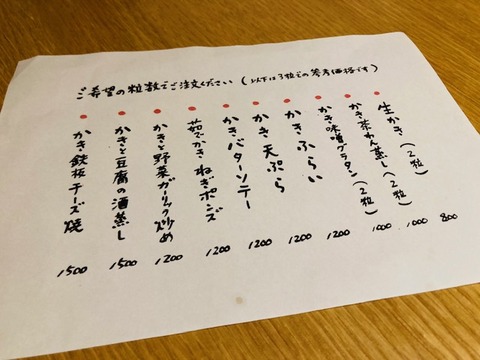 ご希望の粒数でご注文ください（以下は3粒での参考価格です）
生かき（2粒） 800
かき茶わん蒸し（2粒） 1000
かき味噌グラタン（2粒） 1000
かきふらい 1200
かき天ぷら 1200
かきバターソテー 1200
茹でかき ねぎポンズ 1200
かきと野菜ガーリック炒め 1200
かきと豆腐の酒蒸し 1500
かき鉄板チーズ焼 1500